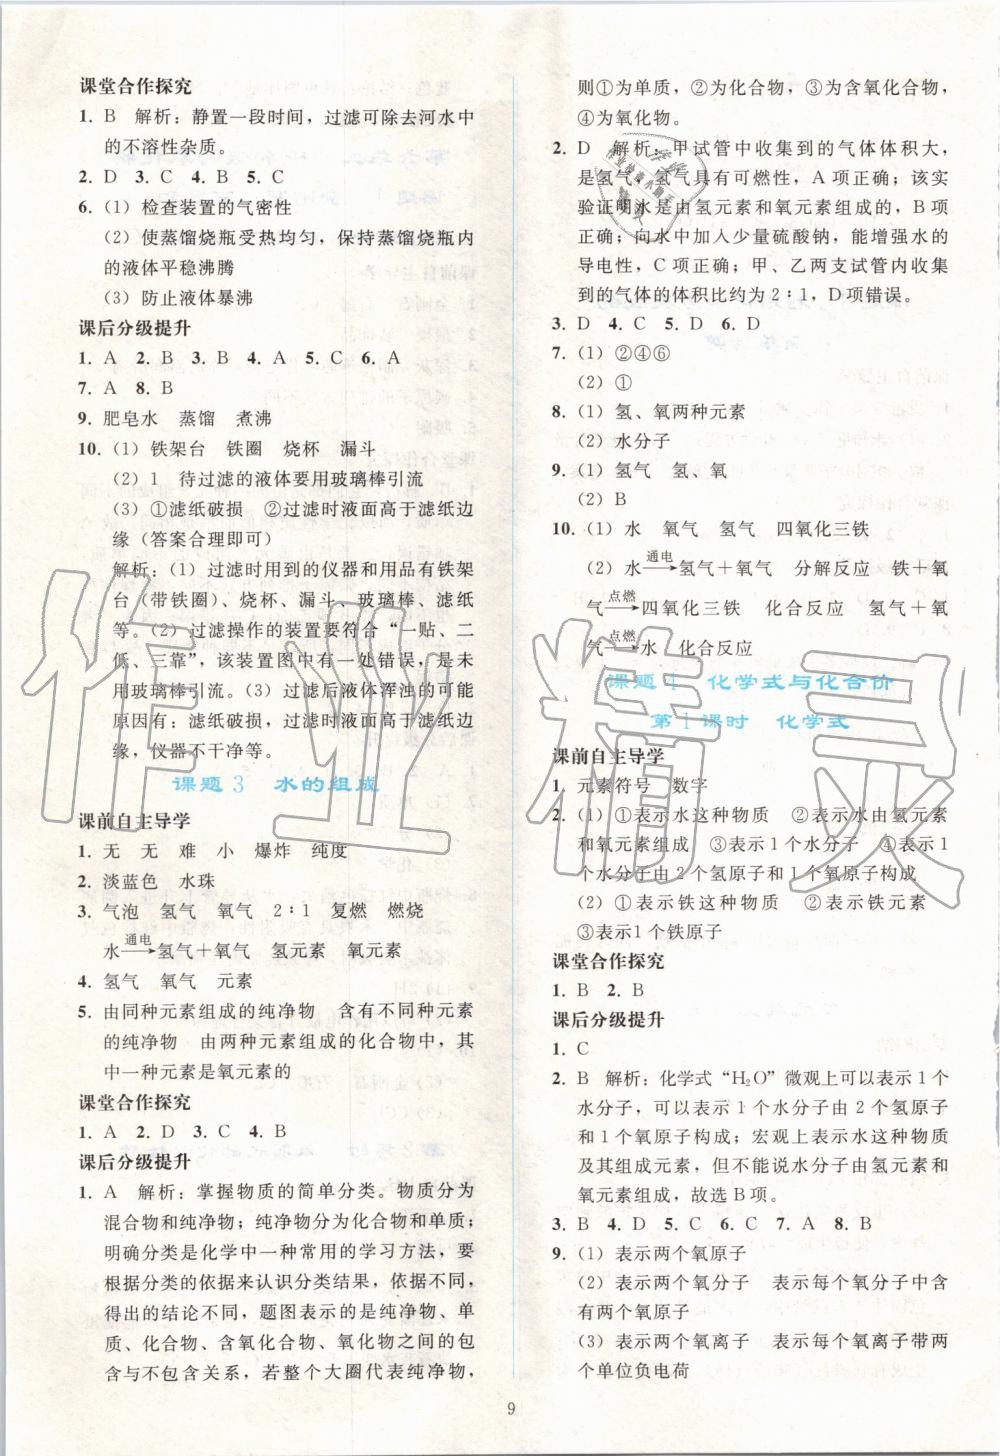 课堂合作探究
1. B 解析：静置一段时间，过滤可除去河水中
的不溶性杂质。
2. D 3. C 4. B 5. C
6. (1) 检查装置的气密性
(2) 使蒸馏烧瓶受热均匀，保持蒸馏烧瓶内
的液体平稳沸腾
(3) 防止液体暴沸
课后分级提升
1. A 2. B 3. B 4. A 5. C 6. A
7. A 8. B
9. 肥皂水 蒸馏 煮沸
10. (1) 铁架台 铁圈 烧杯 漏斗
(2) 1 待过滤的液体要用玻璃棒引流
(3) ①滤纸破损 ②过滤时液面高于滤纸边
缘（答案合理即可）
解析：(1) 过滤时用到的仪器和用品有铁架
台（带铁圈）、烧杯、漏斗、玻璃棒、滤纸
等。(2) 过滤操作的装置要符合“一贴、二
低、三靠”，该装置图中有一处错误，是未
用玻璃棒引流。(3) 过滤后液体浑浊的可能
原因有：滤纸破损，过滤时液面高于滤纸边
缘，仪器不干净等。
课题3 水的组成
课前自主导学
1. 无 无 难 小 爆炸 纯度
2. 淡蓝色 水珠
3. 气泡 氢气 氧气 2∶1 复燃 燃烧
水 通电→ 氢气＋氧气 氢元素 氧元素
4. 氢气 氧气 元素
5. 由同种元素组成的纯净物 含有不同种元素
的纯净物 由两种元素组成的化合物中，其
中一种元素是氧元素的
课堂合作探究
1. A 2. D 3. C 4. B
课后分级提升
1. A 解析：掌握物质的简单分类。物质分为
混合物和纯净物；纯净物分为化合物和单质；
明确分类是化学中一种常用的学习方法，要
根据分类的依据来认识分类结果，依据不同，
得出的结论不同，题图表示的是纯净物、单
质、化合物、含氧化合物、氧化物之间的包
含与不包含关系，若整个大圈代表纯净物，
则①为单质，②为化合物，③为含氧化合物，
④为氧化物。
2. D 解析：甲试管中收集到的气体体积大，
是氢气，氢气具有可燃性，A项正确；该实
验证明水是由氢元素和氧元素组成的，B项
正确；向水中加入少量硫酸钠，能增强水的
导电性，C项正确；甲、乙两支试管内收集
到的气体的体积比约为2∶1，D项错误。
3. D 4. C 5. D 6. D
7. (1) ②④⑥
(2) ①
8. (1) 氢、氧两种元素
(2) 水分子
9. (1) 氢气 氢、氧
(2) B
10. (1) 水 氧气 氢气 四氧化三铁
(2) 水 通电→ 氢气＋氧气 分解反应 铁＋氧
气 点燃→ 四氧化三铁 化合反应 氢气＋氧
气 点燃→ 水 化合反应
课题4 化学式与化合价
第1课时 化学式
课前自主导学
1. 元素符号 数字
2. (1) ①表示水这种物质 ②表示水由氢元素
和氧元素组成 ③表示1个水分子 ④表示1
个水分子由2个氢原子和1个氧原子构成
(2) ①表示铁这种物质 ②表示铁元素
③表示1个铁原子
课堂合作探究
1. B 2. B
课后分级提升
1. C
2. B 解析：化学式“H₂O”微观上可以表示1个
水分子，可以表示1个水分子由2个氢原子
和1个氧原子构成；宏观上表示水这种物质
及其组成元素，但不能说水分子由氢元素和
氧元素组成，故选B项。
3. B 4. D 5. C 6. C 7. A 8. B
9. (1) 表示两个氧原子
(2) 表示两个氧分子 表示每个氧分子中含
有两个氧原子
(3) 表示两个氧离子 表示每个氧离子带两
个单位负电荷
9
作业精灵